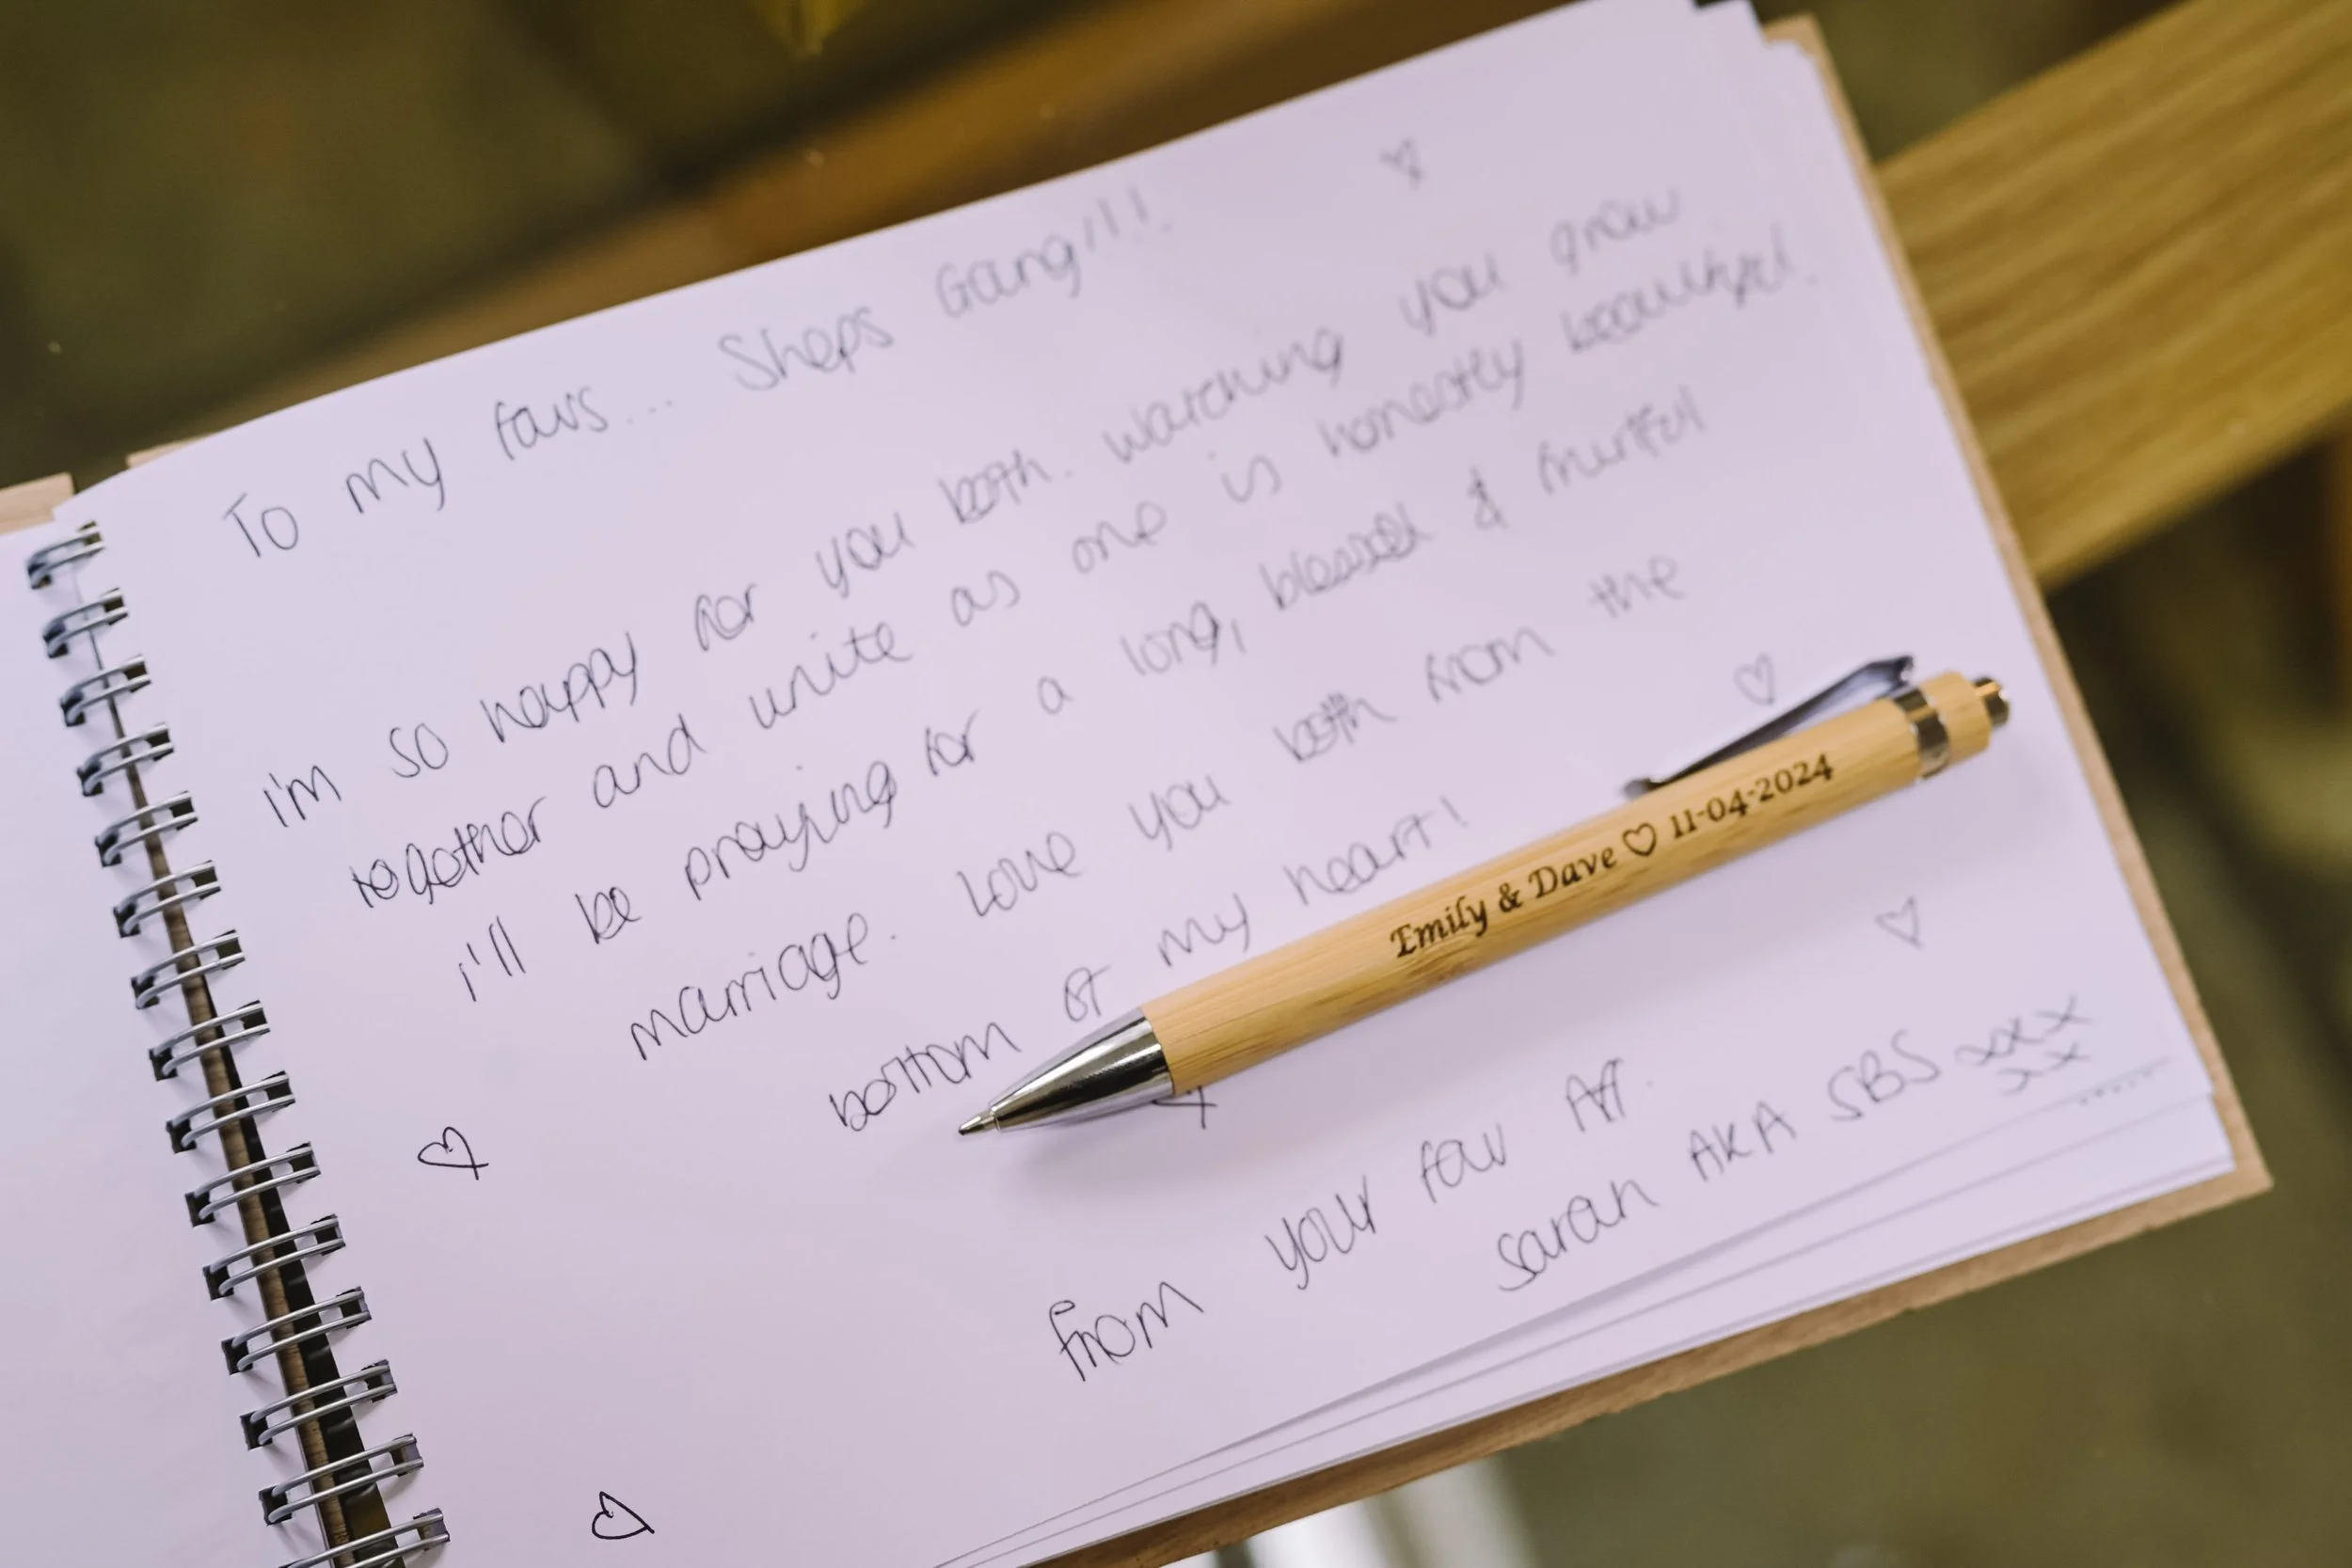 To my favs... Sheps Gang!!!
I'm so happy for you both. Watching you grow
together and unite as one is honestly beautiful.
I'll be praying for a long, blessed & fruitful
marriage. Love you both from the
bottom of my heart!
Emily & Dave ♡ 11-04-2024
From your fav
Sarah AKA SBS xxx
xx